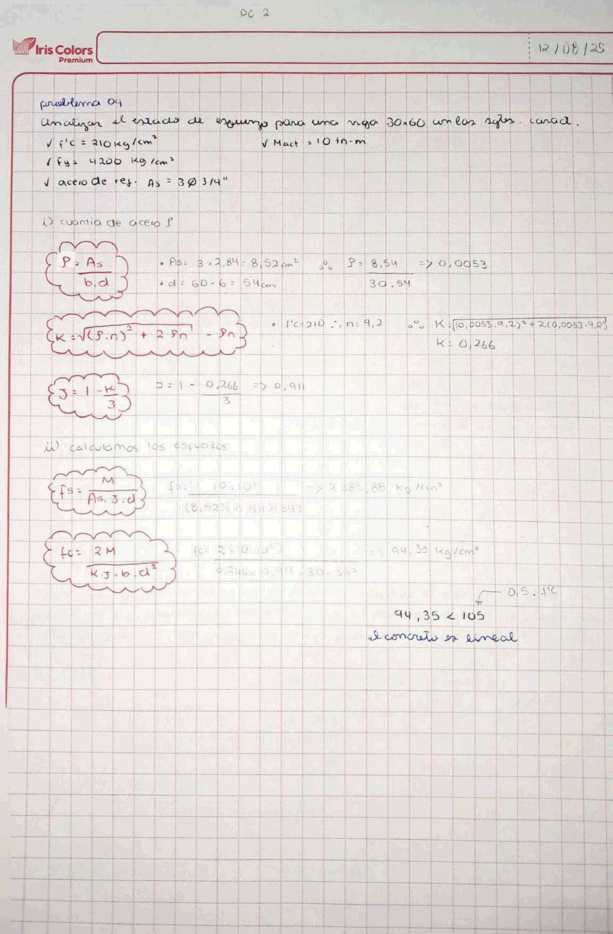 PC 2
Iris Colors
Premium
12/08/25
problema 04
Analizar el estado de esfuerzo para una viga 30x60 con las sgtes. caract.
√ f'c = 210 kg/cm² √ Mact = 10 tn-m
√ fy = 4200 kg/cm²
√ acero de ref. As = 3Ø 3/4"
i) cuantía de acero ρ
ρ = As / b.d • As = 3 × 2,84 = 8,52 cm² ∴ ρ = 8,54 / 30.54 => 0,0053
• d = 60-6 = 54cm
K = √(ρ.n)² + 2ρn - ρn • f'c=210 ∴ n = 9,2 ∴ K = √(0,0053.9,2)² + 2(0,0053.9,2)
K = 0,266
J = 1 - K/3 J = 1 - 0,266/3 => 0,911
ii) calculamos los esfuerzos
fs = M / As.J.d => kg/cm²
fc = 2M / K.J.b.d² => 94,35 kg/cm²
0,5.f'c
94,35 < 105
el concreto es lineal